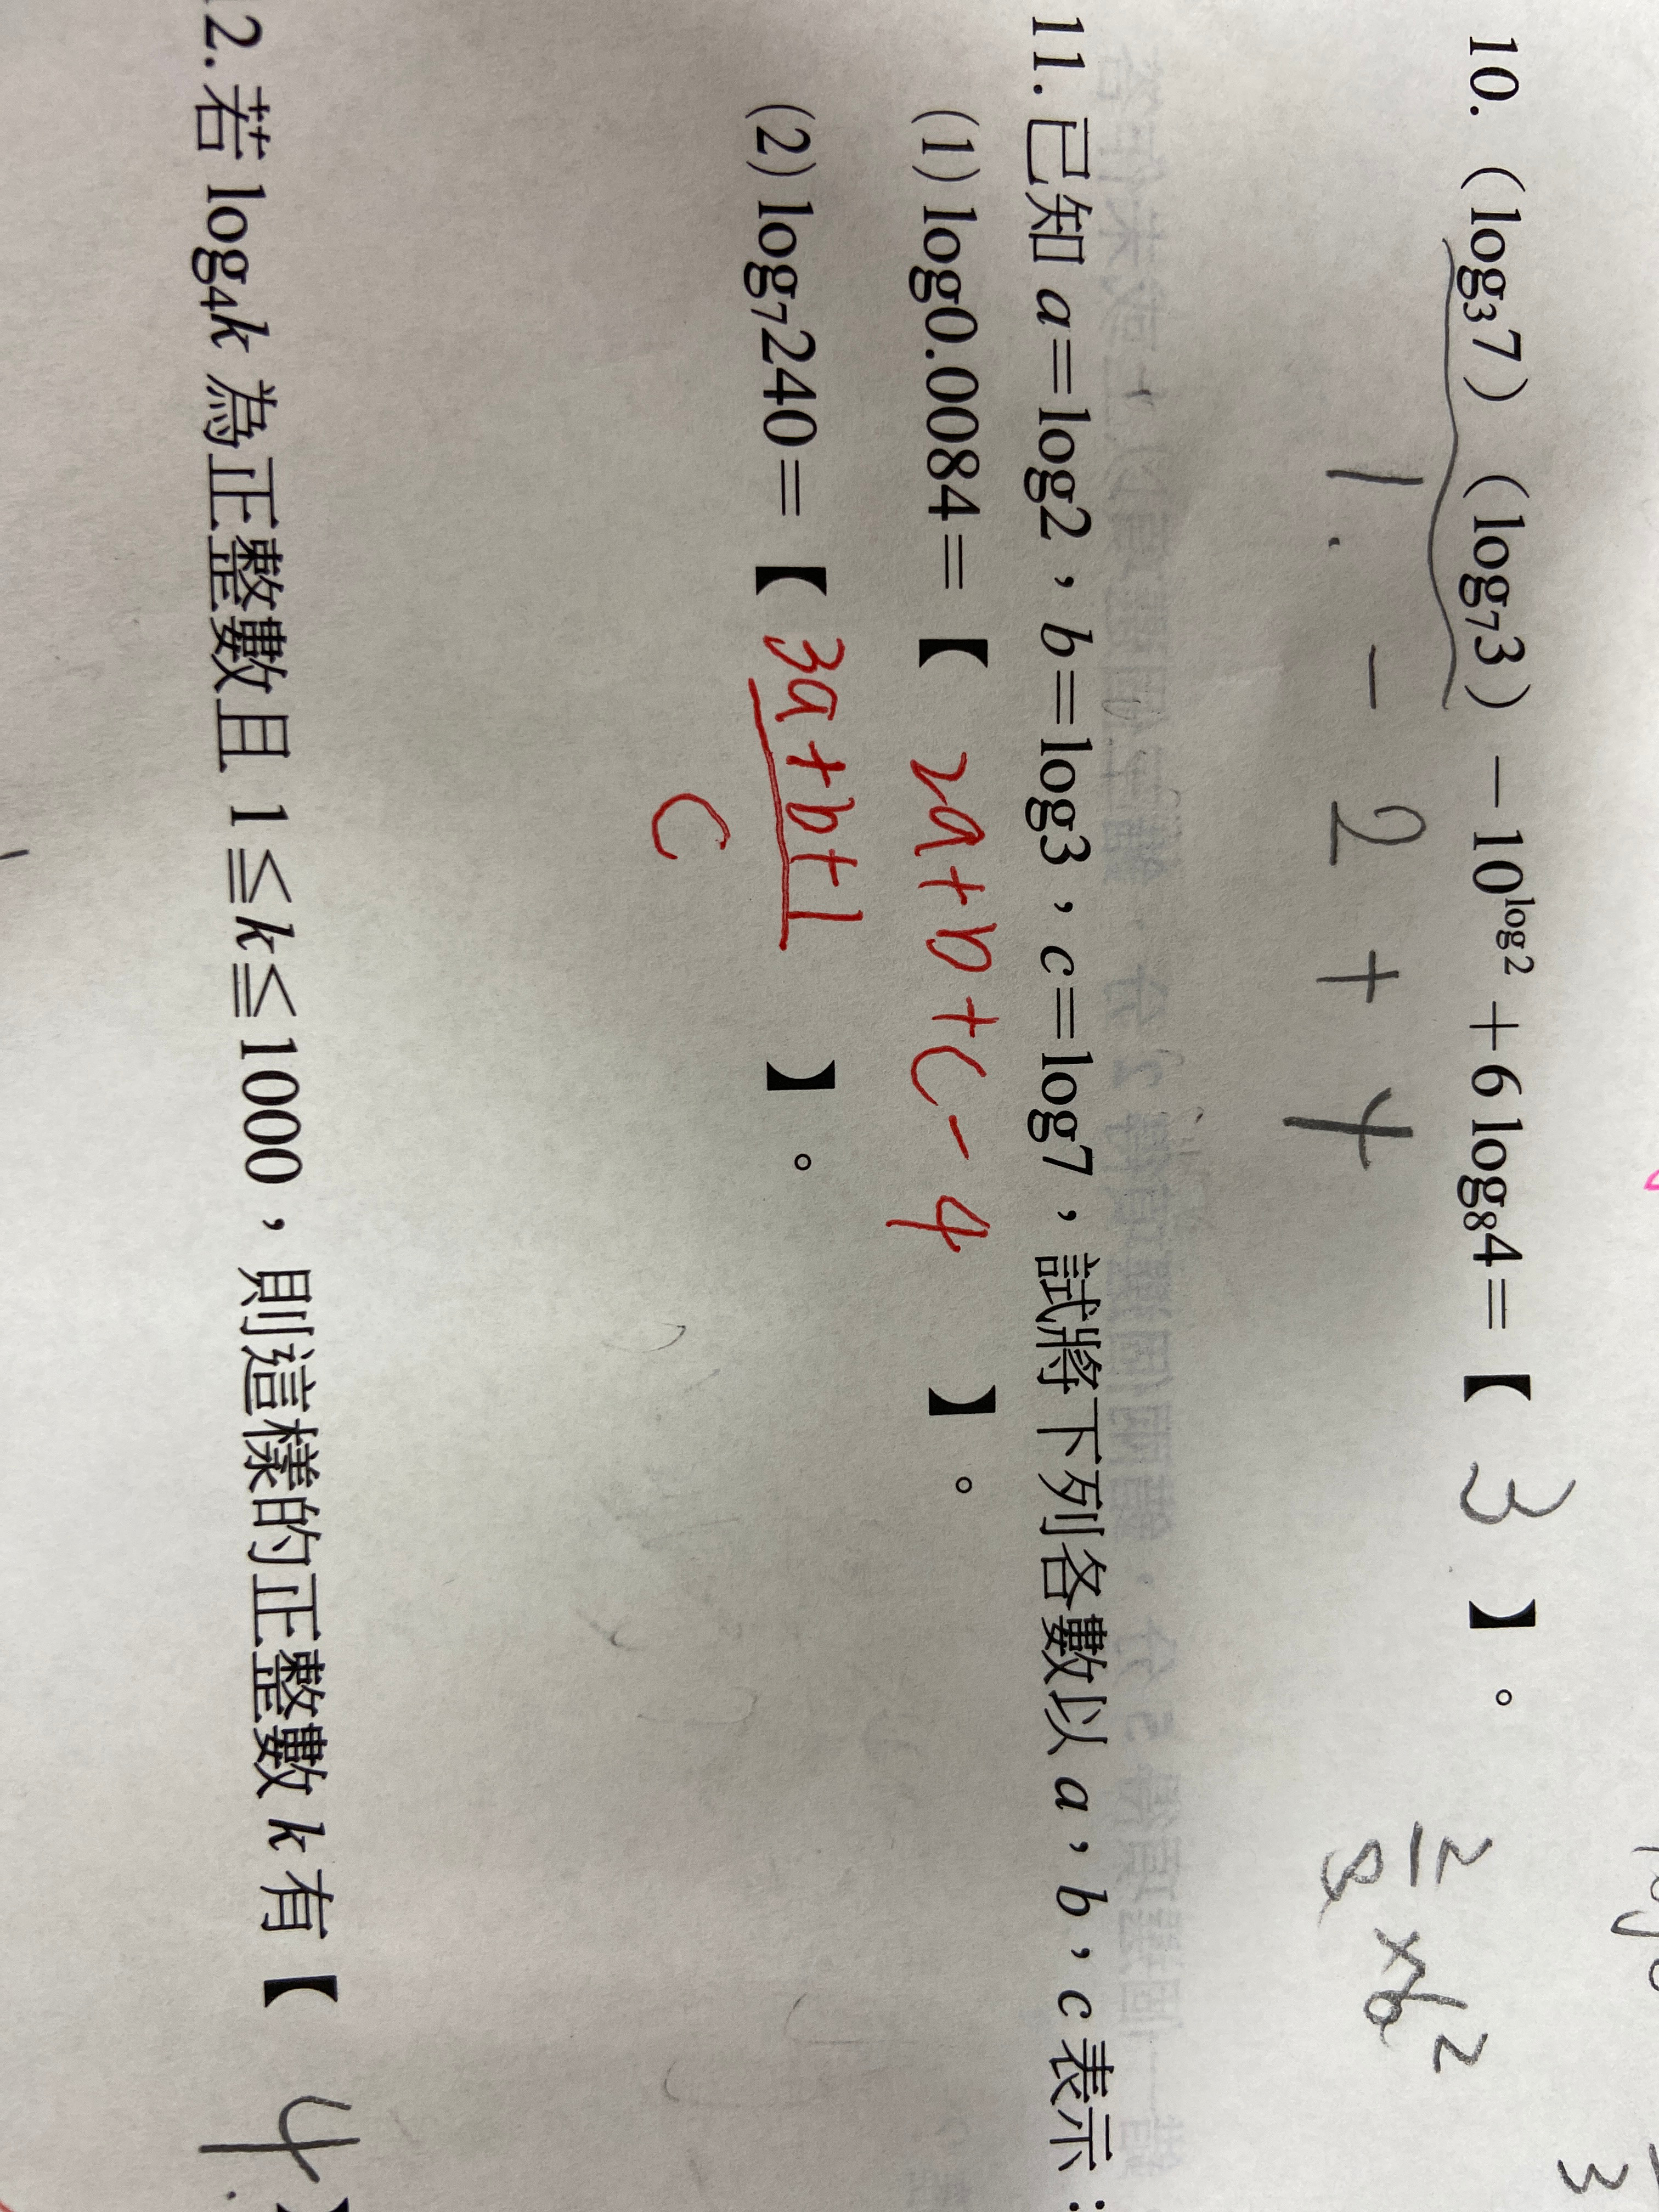 10.（log₃7）（log₇3）－10^log2＋6 log₈4＝【 3 】。
1. - 2 + 4
2/3 × 6 2
3
11.已知 a＝log2，b＝log3，c＝log7，試將下列各數以 a，b，c 表示：
(1) log0.0084＝【 2a+b+c-4 】。
(2) log₇240＝【 3a+b+1 】。
c
2.若 log₄k 為正整數且 1≦k≦1000，則這樣的正整數 k 有【 4 】